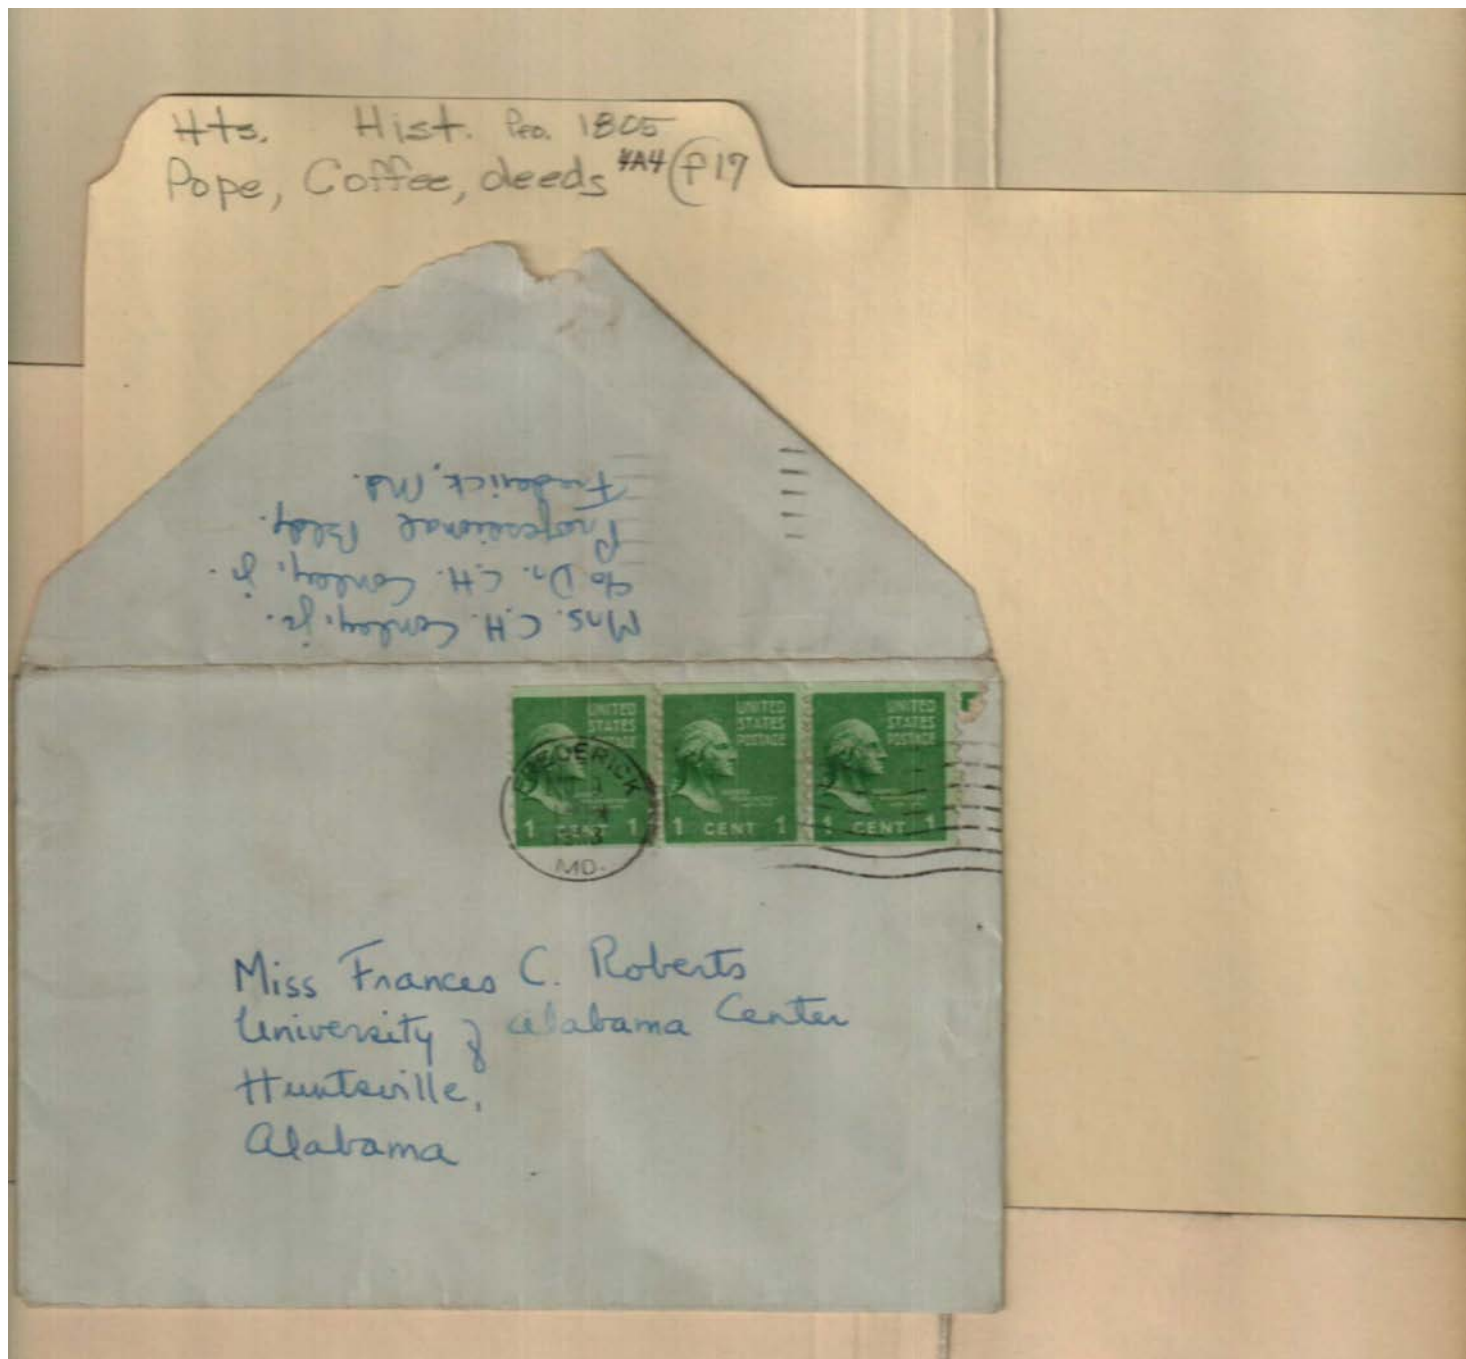 Hts. Hist. Peo. 1805
Pope, Coffee, deeds 4A4 f 17
Mrs. C.H. Conley, jr.
c/o Dr. C.H. Conley, jr.
Professional Bldg.
Frederick, Md.
UNITED STATES POSTAGE
1 CENT 1
UNITED STATES POSTAGE
1 CENT 1
UNITED STATES POSTAGE
1 CENT 1
FREDERICK
MD.
Miss Frances C. Roberts
University of Alabama Center
Huntsville,
Alabama